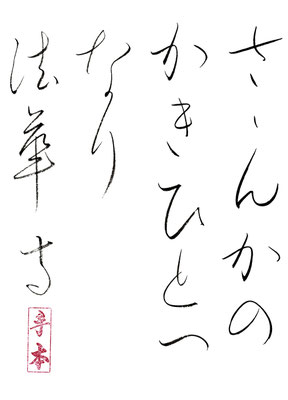 さゝんかの
かきひとへ
なり
法華寺